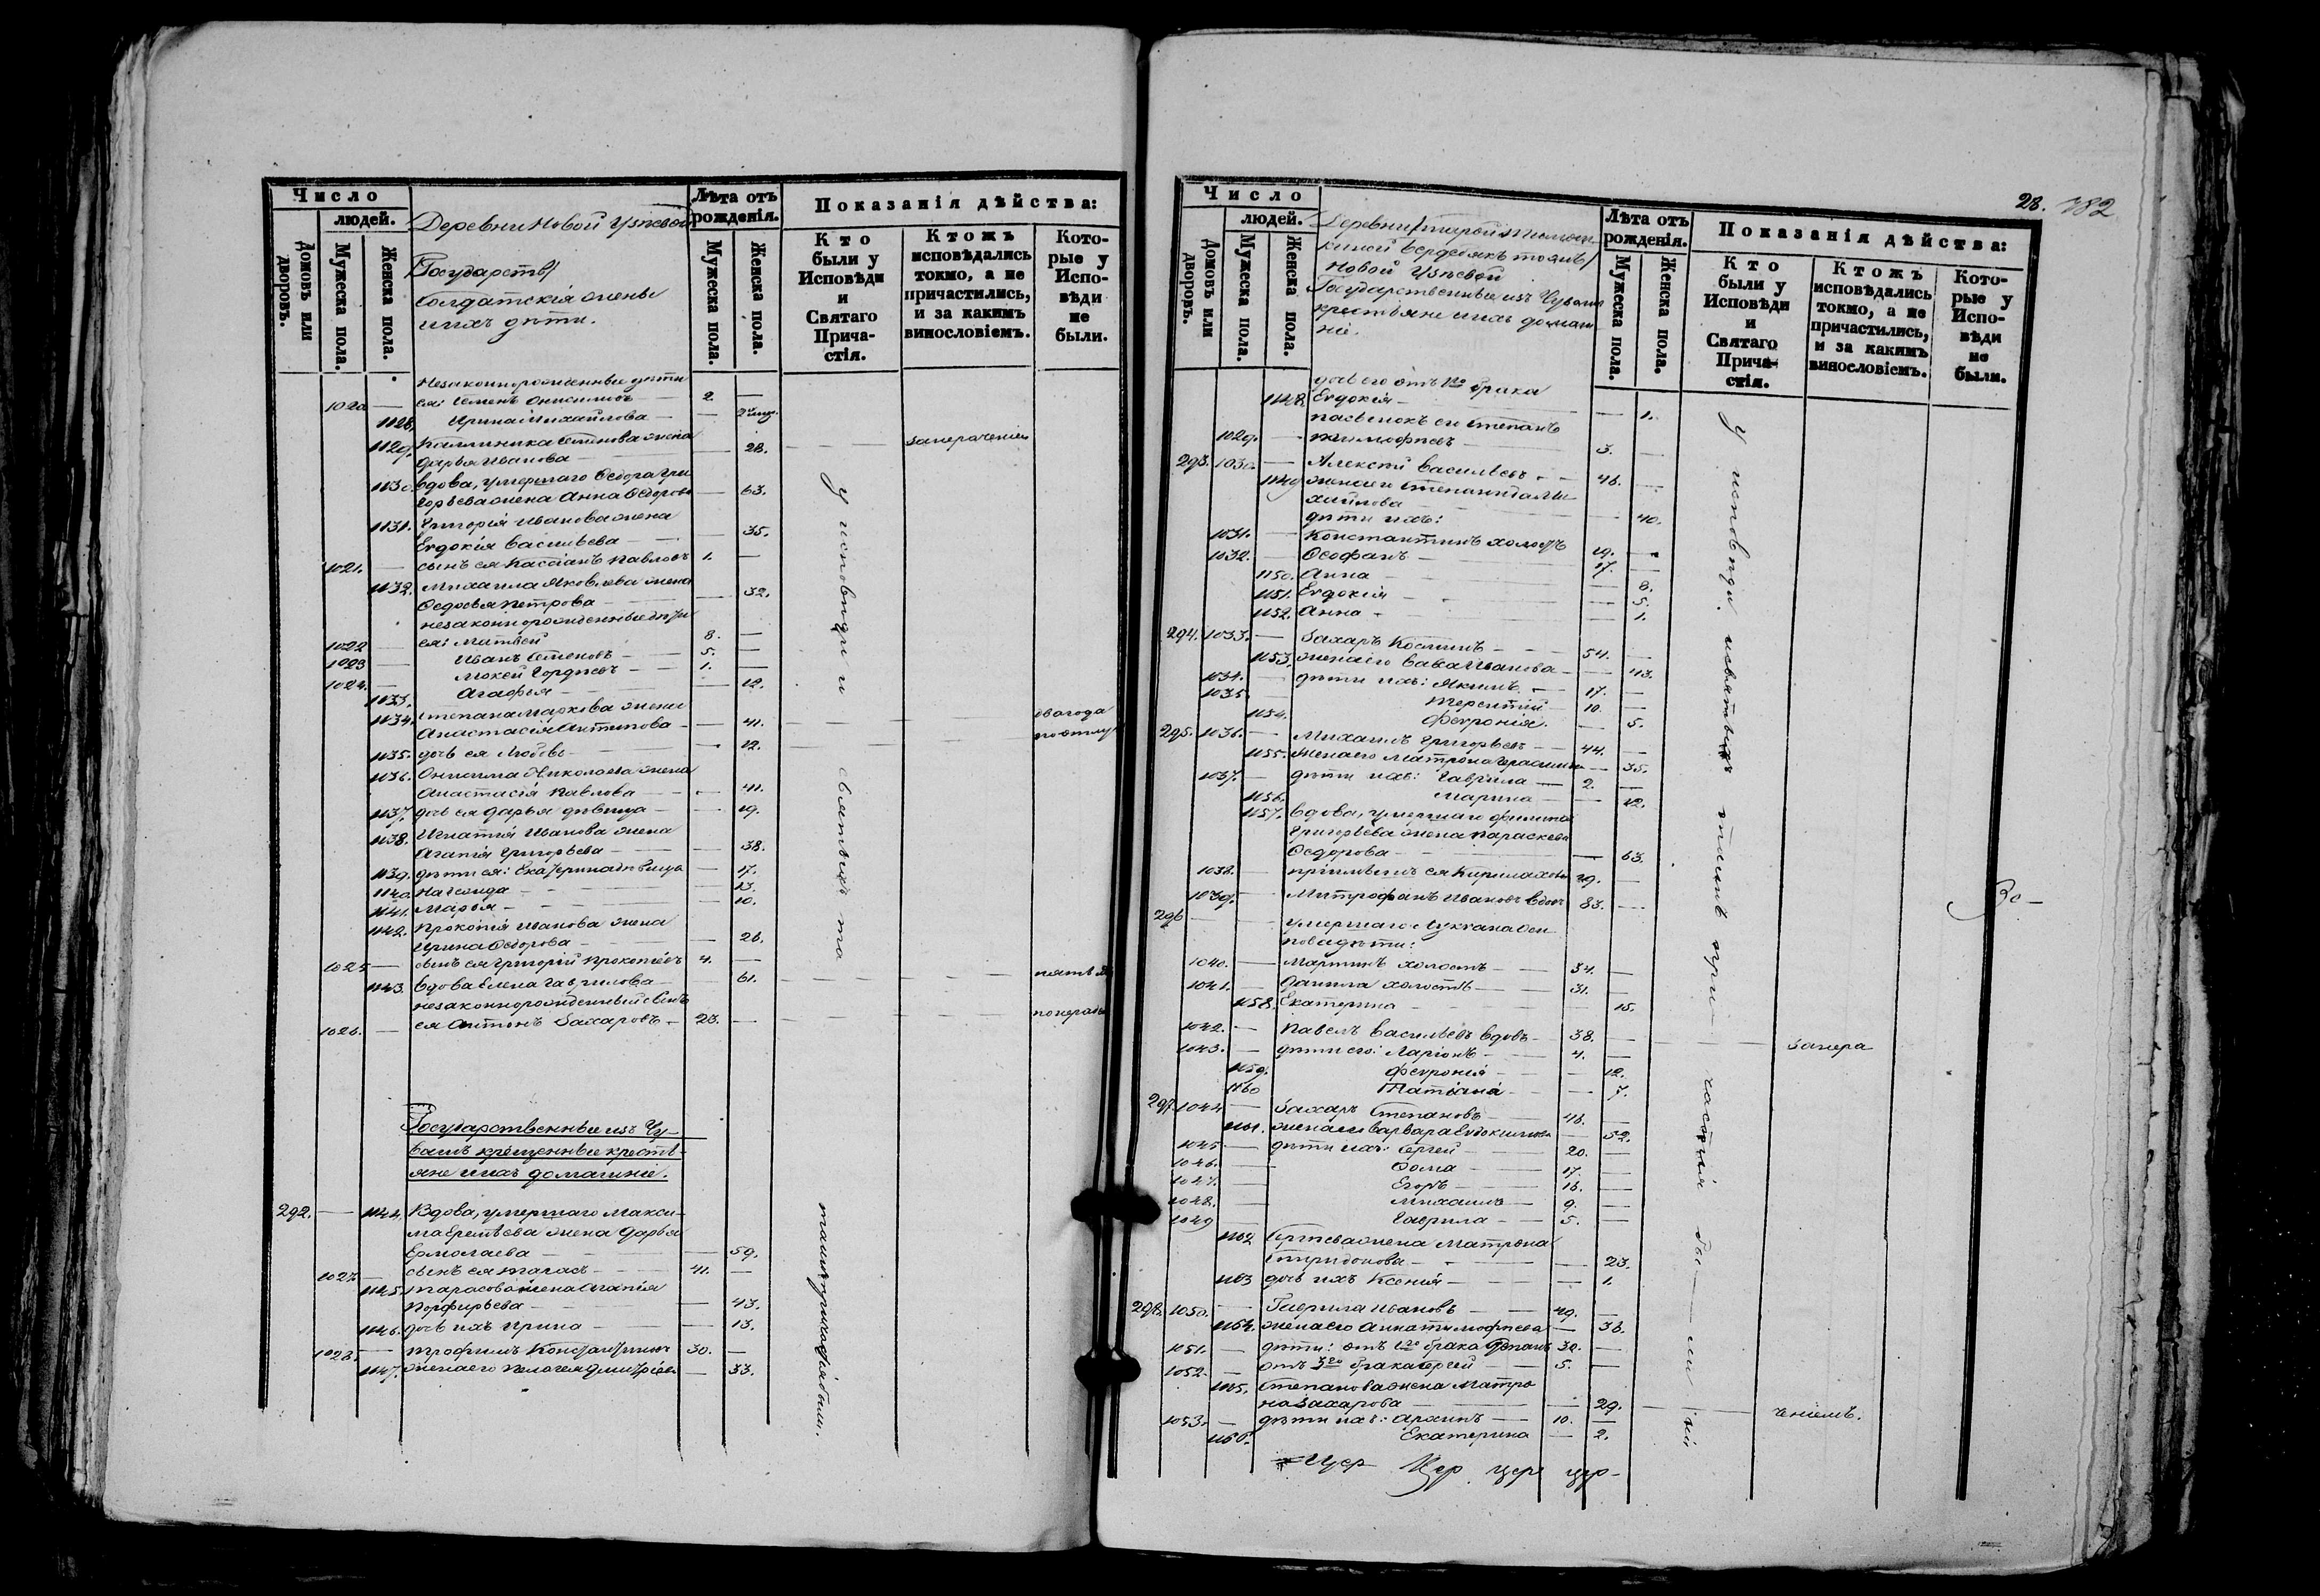 Число
людей.
Домовъ или дворовъ.
Мужеска пола.
Женска пола.
Деревни Новой Узѣевой
Государств/
солдатскія жены
и ихъ дѣти.
Лѣта отъ рожденія.
Мужеска пола.
Женска пола.
Показанія дѣйства:
Кто были у Исповѣди и Святаго Причастія.
Ктожъ исповѣдались токмо, а не причастились, и за какимъ винословіемъ.
Которые у Исповѣди не были.
незаконнорожденные дѣти
1020 — ея: Семенъ Онисимовъ — 2. —
1128. Ирина Михайлова —
1129. Каллиника Семенова жена
Дарья Иванова — 28.
1130. вдова, умершаго Ѳедора Гри
горьева жена Анна Ѳедорова — 63.
1131. Григорія Иванова жена
Евдокія Васильева — 35.
1021. — сынъ ея Кассіанъ Павловъ 1. —
1132. Михаила Яковлева жена
Ѳедосья Петрова — 32.
незаконнорожденные дѣти
1022 — ея: Матвей 8. —
1023 — Иванъ Семеновъ — 5. —
1024. — Мокей Гордѣевъ — 1. —
1133. Агафья — 12.
1134. Степана Маркова жена
Анастасія Антипова — 41.
1135. дочь ея Любовь — 12.
1136. Онисима Николаева жена
Анастасія Павлова — 41.
1137. дочь ея Дарья дѣвица — 19.
1138. Игнатія Иванова жена
Агапія Григорьева — 38.
1139. дѣти ея: Екатерина дѣвица — 17.
1140. — 13.
1141. Марья — 10.
1142. Прокопія Иванова жена
Ирина Ѳедорова — 26.
1025 — сынъ ея Григорій Прокопіевъ 4. —
1143. вдова Елена Гаврилова — 61. пять
незаконнорожденный сынъ
1026. — ея Антонъ Захаровъ — 23. —
у исповѣди и святыхъ та
инъ причастія были.
Государственные изъ Чу-
вашъ крещенные кресть-
яне и ихъ домашніе.
292. — 1144. Вдова, умершаго Макси-
ма Еремѣева жена Дарья
Ермолаева — 59.
1027. — сынъ ея Тарасъ — 41. —
1145. Тарасова жена Агапія
Порфирьева — 43.
1146. дочь ихъ Ирина — 13.
1028. — Трофимъ Константиновъ 30. —
1147. жена его Пелагея Дмитріева — 33.
28. 782
Число
людей.
Домовъ или дворовъ.
Мужеска пола.
Женска пола.
Новой Узѣевой
Государственные изъ Чувашъ
крестьяне и ихъ домаш
ніе.
Лѣта отъ рожденія.
Мужеска пола.
Женска пола.
Показанія дѣйства:
Кто были у Исповѣди и Святаго Причастія.
Ктожъ исповѣдались токмо, а не причастились, и за какимъ винословіемъ.
Которые у Исповѣди не были.
дочь его отъ 1го брака
1148. Евдокія — 1.
пасынокъ ея Степанъ
1029. — Тимофѣевъ 3. —
293. 1030. — Алексѣй Васильевъ — 46. —
1149 жена его Степанида Ми
хайлова — 40.
дѣти ихъ:
1031. — Константинъ холостъ 19. —
1032. — Ѳеофанъ — 17. —
1150. Анна — 8.
1151. Евдокія — 5.
1152. Анна — 1.
294. 1033. — Захаръ Козминъ — 54. —
1153. жена его Иванова — 43.
1034. — дѣти ихъ: Якимъ — 17. —
1035. Терентій 10. —
1154. Февронія. — 5.
295. 1036. — Михаилъ Григорьевъ — 44. —
1155. жена его Матрона Герасимова — 35.
1037. — дѣти ихъ: Гаврила — 2. —
1156. Марина — 12.
1157. вдова, умершаго Филипа
Григорьева жена Параскева
Ѳедорова — 63.
1038. — ея Кирила 19. —
1039. — Митрофанъ Ивановъ вдовъ 83. —
296 — умершаго Лукіана Оси
пова дѣти:
1040. — Мартинъ холостъ — 34. —
1041. — Данила холостъ — 31. —
1158. Екатерина — 15.
1042. — Павелъ Васильевъ вдовъ — 38. —
1043. — дѣти его: Ларіонъ — 4. —
1159. Февронія — 12.
1160 Татіана — 7.
297 1044 — Захаръ Степановъ 46. —
1161. жена его Варвара Евдокимова — 52.
1045 — дѣти ихъ: Сергей — 20. —
1046. — Ѳома — 17. —
1047. — Егоръ — 16. —
1048. — Михаилъ — 9. —
1049 — Гаврила — 5. —
1162 Сергѣева жена Матрона
Спиридонова — 23.
1163 дочь ихъ Ксенія — 1.
298. 1050. — Гаврила Ивановъ — 49. —
1164. жена его Анна Тимофѣева — 38.
1051. — дѣти: отъ 1го брака Степанъ 30. —
1052. — отъ 3го брака Сергей — 5. —
1165. Степанова жена Матро
на Захарова — 29.
1053. — дѣти ихъ: Архипъ — 10. —
1166. Екатерина — 2.
у исповѣди и святыхъ таинъ при — частія бы — ли